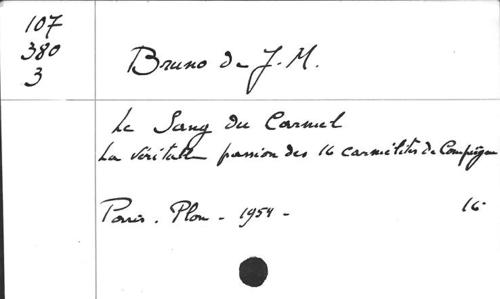 107
380
3
Bruno de J. M.
Le Sang du Carmel
La véritable passion des 16 carmélites de Compiègne
Paris. Plon - 1954 - 16